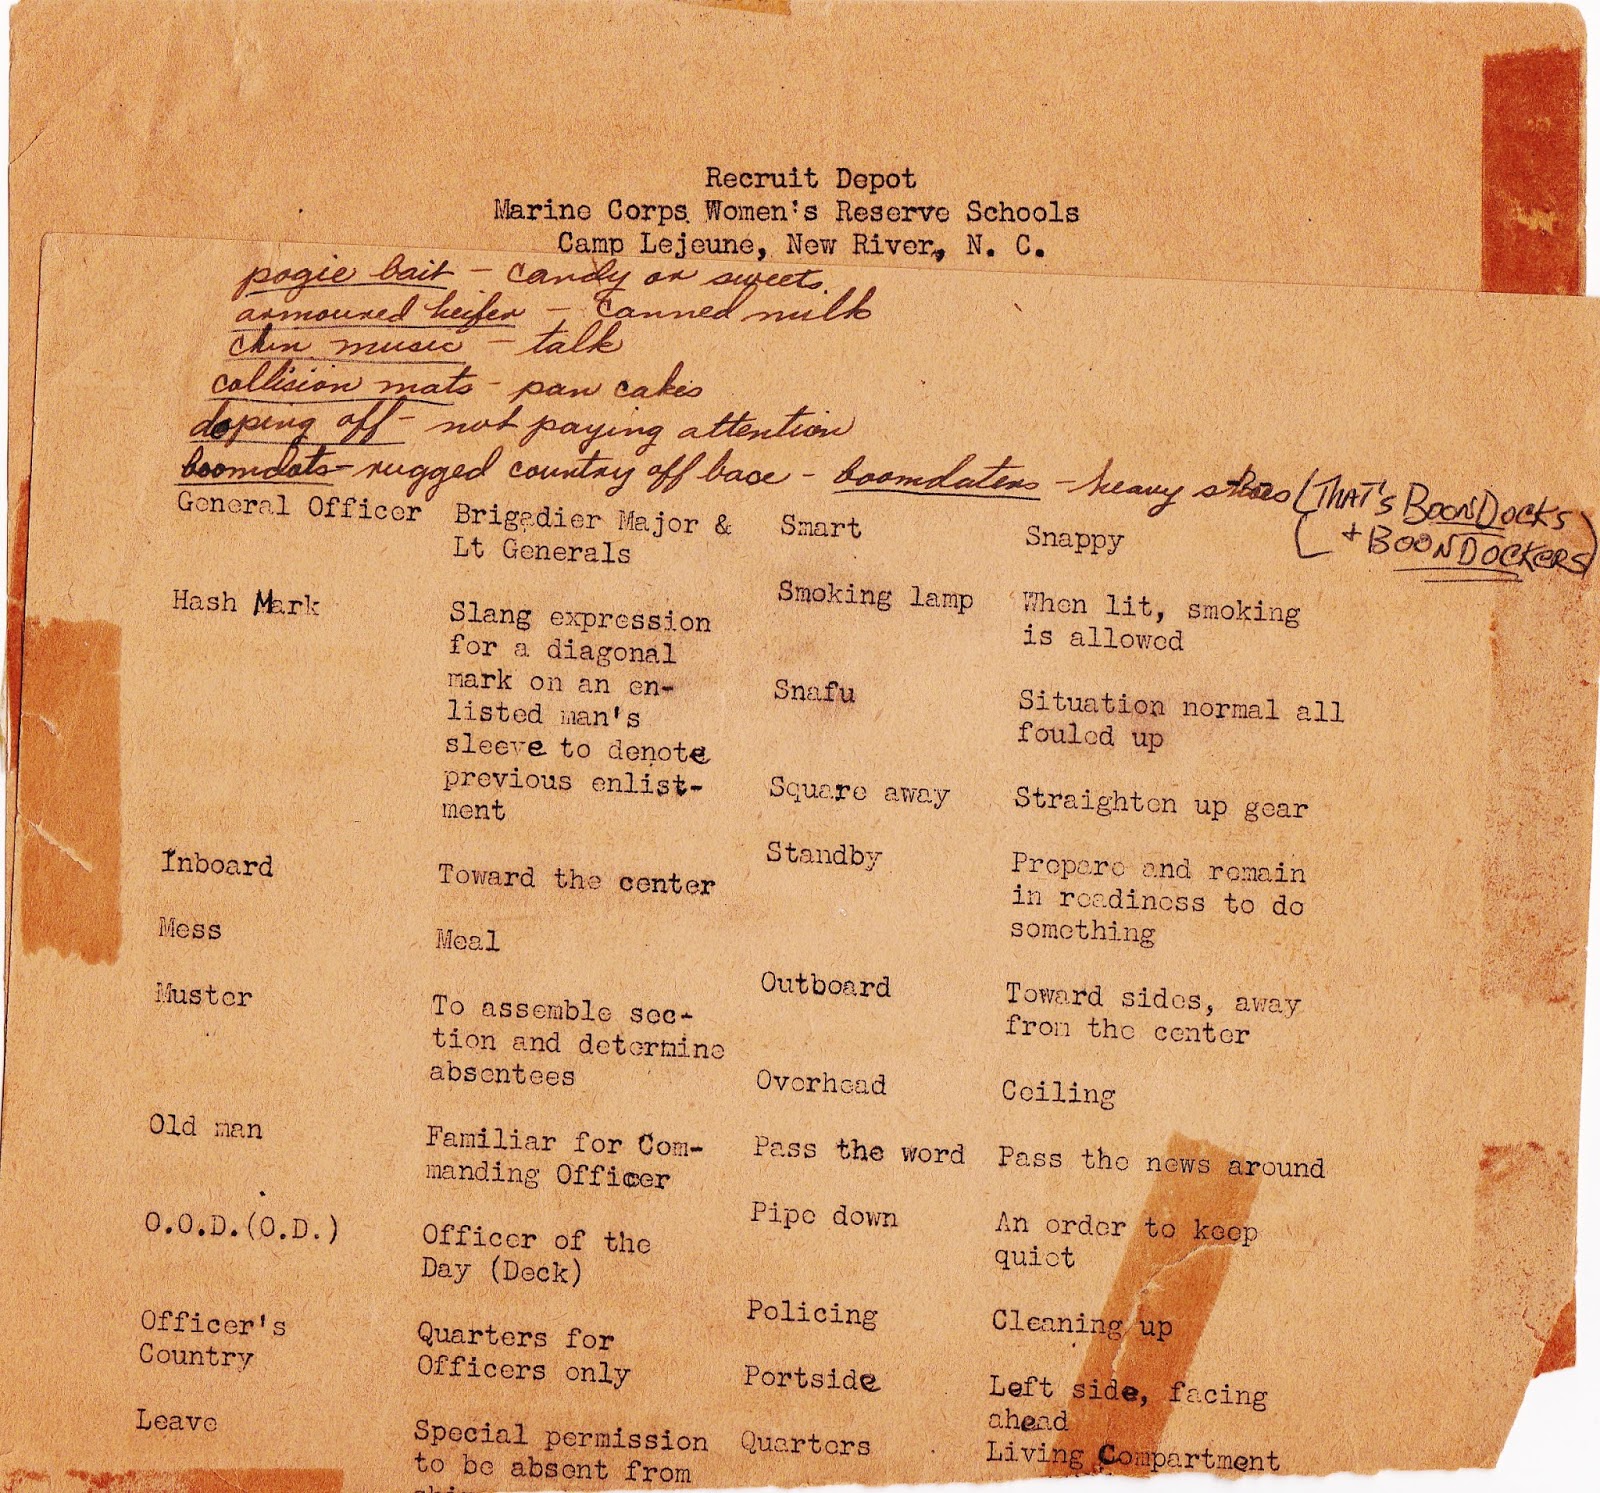 Recruit Depot
Marine Corps Women's Reserve Schools
Camp Lejeune, New River, N. C.
pogie bait - candy or sweets.
armoured heifer - canned milk
chin music - talk
collision mats - pan cakes
doping off - not paying attention
boomdots - rugged country off base - boomdaters - heavy shoes (THAT'S BOONDOCKS
+ BOONDOCKERS)
General Officer Brigadier Major &
Lt Generals
Hash Mark Slang expression
for a diagonal
mark on an en-
listed man's
sleeve to denote
previous enlist-
ment
Inboard Toward the center
Mess Meal
Muster To assemble sec-
tion and determine
absentees
Old man Familiar for Com-
manding Officer
O.O.D.(O.D.) Officer of the
Day (Deck)
Officer's Quarters for
Country Officers only
Leave Special permission
to be absent from
Smart Snappy
Smoking lamp When lit, smoking
is allowed
Snafu Situation normal all
fouled up
Square away Straighten up gear
Standby Prepare and remain
in readiness to do
something
Outboard Toward sides, away
from the center
Overhead Ceiling
Pass the word Pass the news around
Pipe down An order to keep
quiet
Policing Cleaning up
Portside Left side, facing
ahead
Quarters Living Compartment